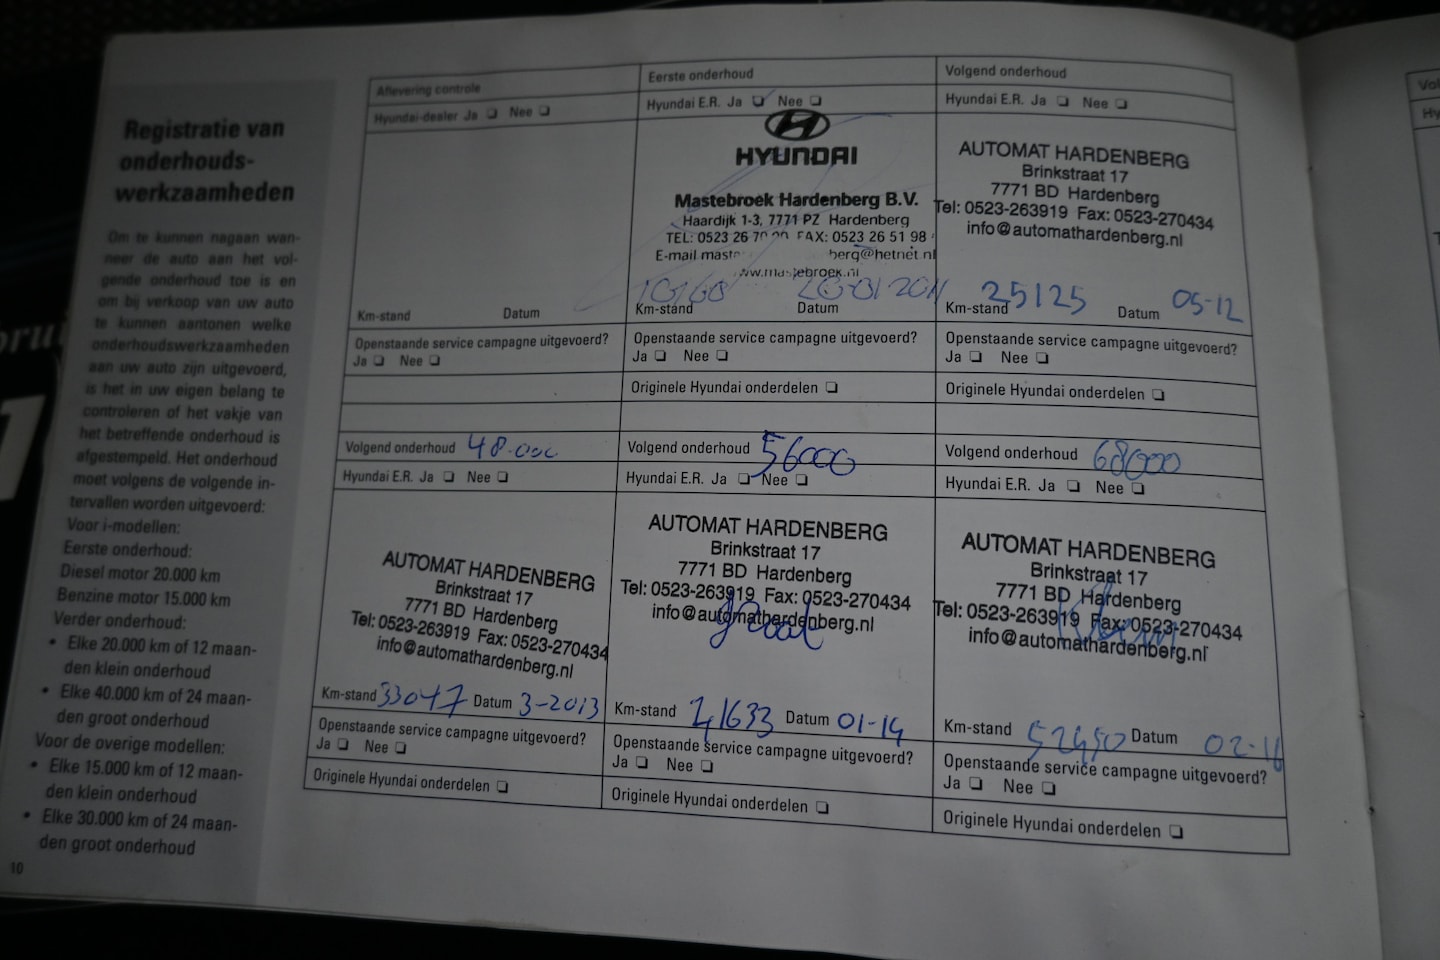 Registratie van
onderhouds-
werkzaamheden
Om te kunnen nagaan wan-
neer de auto aan het vol-
gende onderhoud toe is en
om bij verkoop van uw auto
te kunnen aantonen welke
onderhoudswerkzaamheden
aan uw auto zijn uitgevoerd,
is het in uw eigen belang te
controleren of het vakje van
het betreffende onderhoud is
afgestempeld. Het onderhoud
moet volgens de volgende in-
tervallen worden uitgevoerd:
Voor i-modellen:
Eerste onderhoud:
Diesel motor 20.000 km
Benzine motor 15.000 km
Verder onderhoud:
• Elke 20.000 km of 12 maan-
den klein onderhoud
• Elke 40.000 km of 24 maan-
den groot onderhoud
Voor de overige modellen:
• Elke 15.000 km of 12 maan-
den klein onderhoud
• Elke 30.000 km of 24 maan-
den groot onderhoud
10
Aflevering controle
Hyundai-dealer Ja ❏ Nee ❏
Km-stand Datum
Openstaande service campagne uitgevoerd?
Ja ❏ Nee ❏
Eerste onderhoud
Hyundai E.R. Ja ❏ Nee ❏
HYUNDAI
Mastebroek Hardenberg B.V.
Haardijk 1-3, 7771 PZ Hardenberg
TEL: 0523 26 FAX: 0523 26 51 98
E-mail
Km-stand Datum 20-01 2011
Openstaande service campagne uitgevoerd?
Ja ❏ Nee ❏
Originele Hyundai onderdelen ❏
Volgend onderhoud
Hyundai E.R. Ja ❏ Nee ❏
AUTOMAT HARDENBERG
Brinkstraat 17
7771 BD Hardenberg
Tel: 0523-263919 Fax: 0523-270434
info@automathardenberg.nl
Km-stand 25125 Datum 05-12
Openstaande service campagne uitgevoerd?
Ja ❏ Nee ❏
Originele Hyundai onderdelen ❏
Volgend onderhoud 48.000
Hyundai E.R. Ja ❏ Nee ❏
AUTOMAT HARDENBERG
Brinkstraat 17
7771 BD Hardenberg
Tel: 0523-263919 Fax: 0523-270434
info@automathardenberg.nl
Km-stand 33047 Datum 3-2013
Openstaande service campagne uitgevoerd?
Ja ❏ Nee ❏
Originele Hyundai onderdelen ❏
Volgend onderhoud 56000
Hyundai E.R. Ja ❏ Nee ❏
AUTOMAT HARDENBERG
Brinkstraat 17
7771 BD Hardenberg
Tel: 0523-263919 Fax: 0523-270434
info@automathardenberg.nl
Km-stand 41633 Datum 01-14
Openstaande service campagne uitgevoerd?
Ja ❏ Nee ❏
Originele Hyundai onderdelen ❏
Volgend onderhoud 68000
Hyundai E.R. Ja ❏ Nee ❏
AUTOMAT HARDENBERG
Brinkstraat 17
7771 BD Hardenberg
Tel: 0523-263919 Fax: 0523-270434
info@automathardenberg.nl
Km-stand 52450 Datum 02-16
Openstaande service campagne uitgevoerd?
Ja ❏ Nee ❏
Originele Hyundai onderdelen ❏